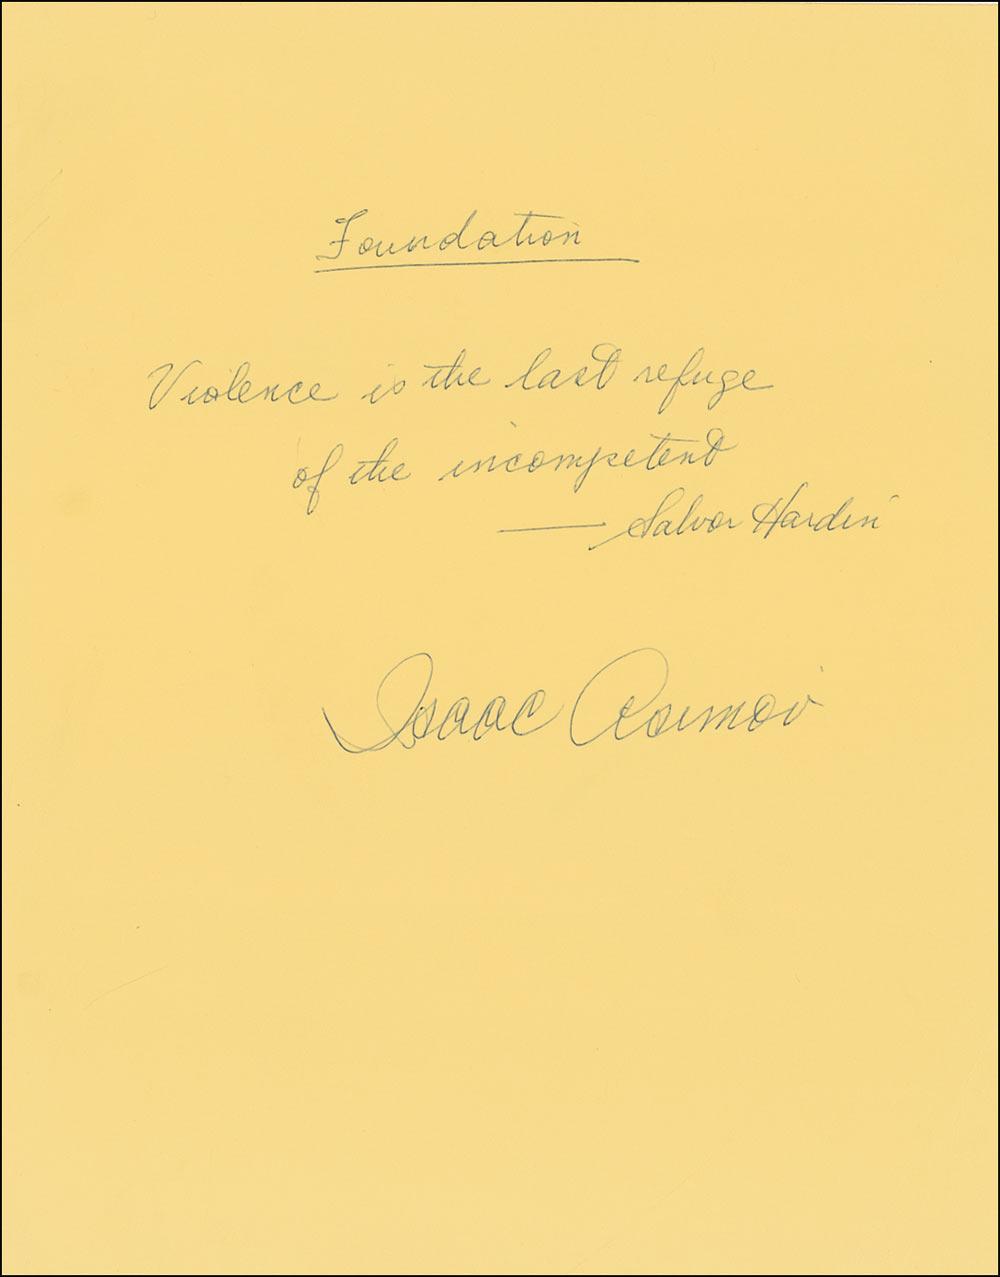 Foundation
Violence is the last refuge
of the incompetent
— Salvor Hardin
Isaac Asimov